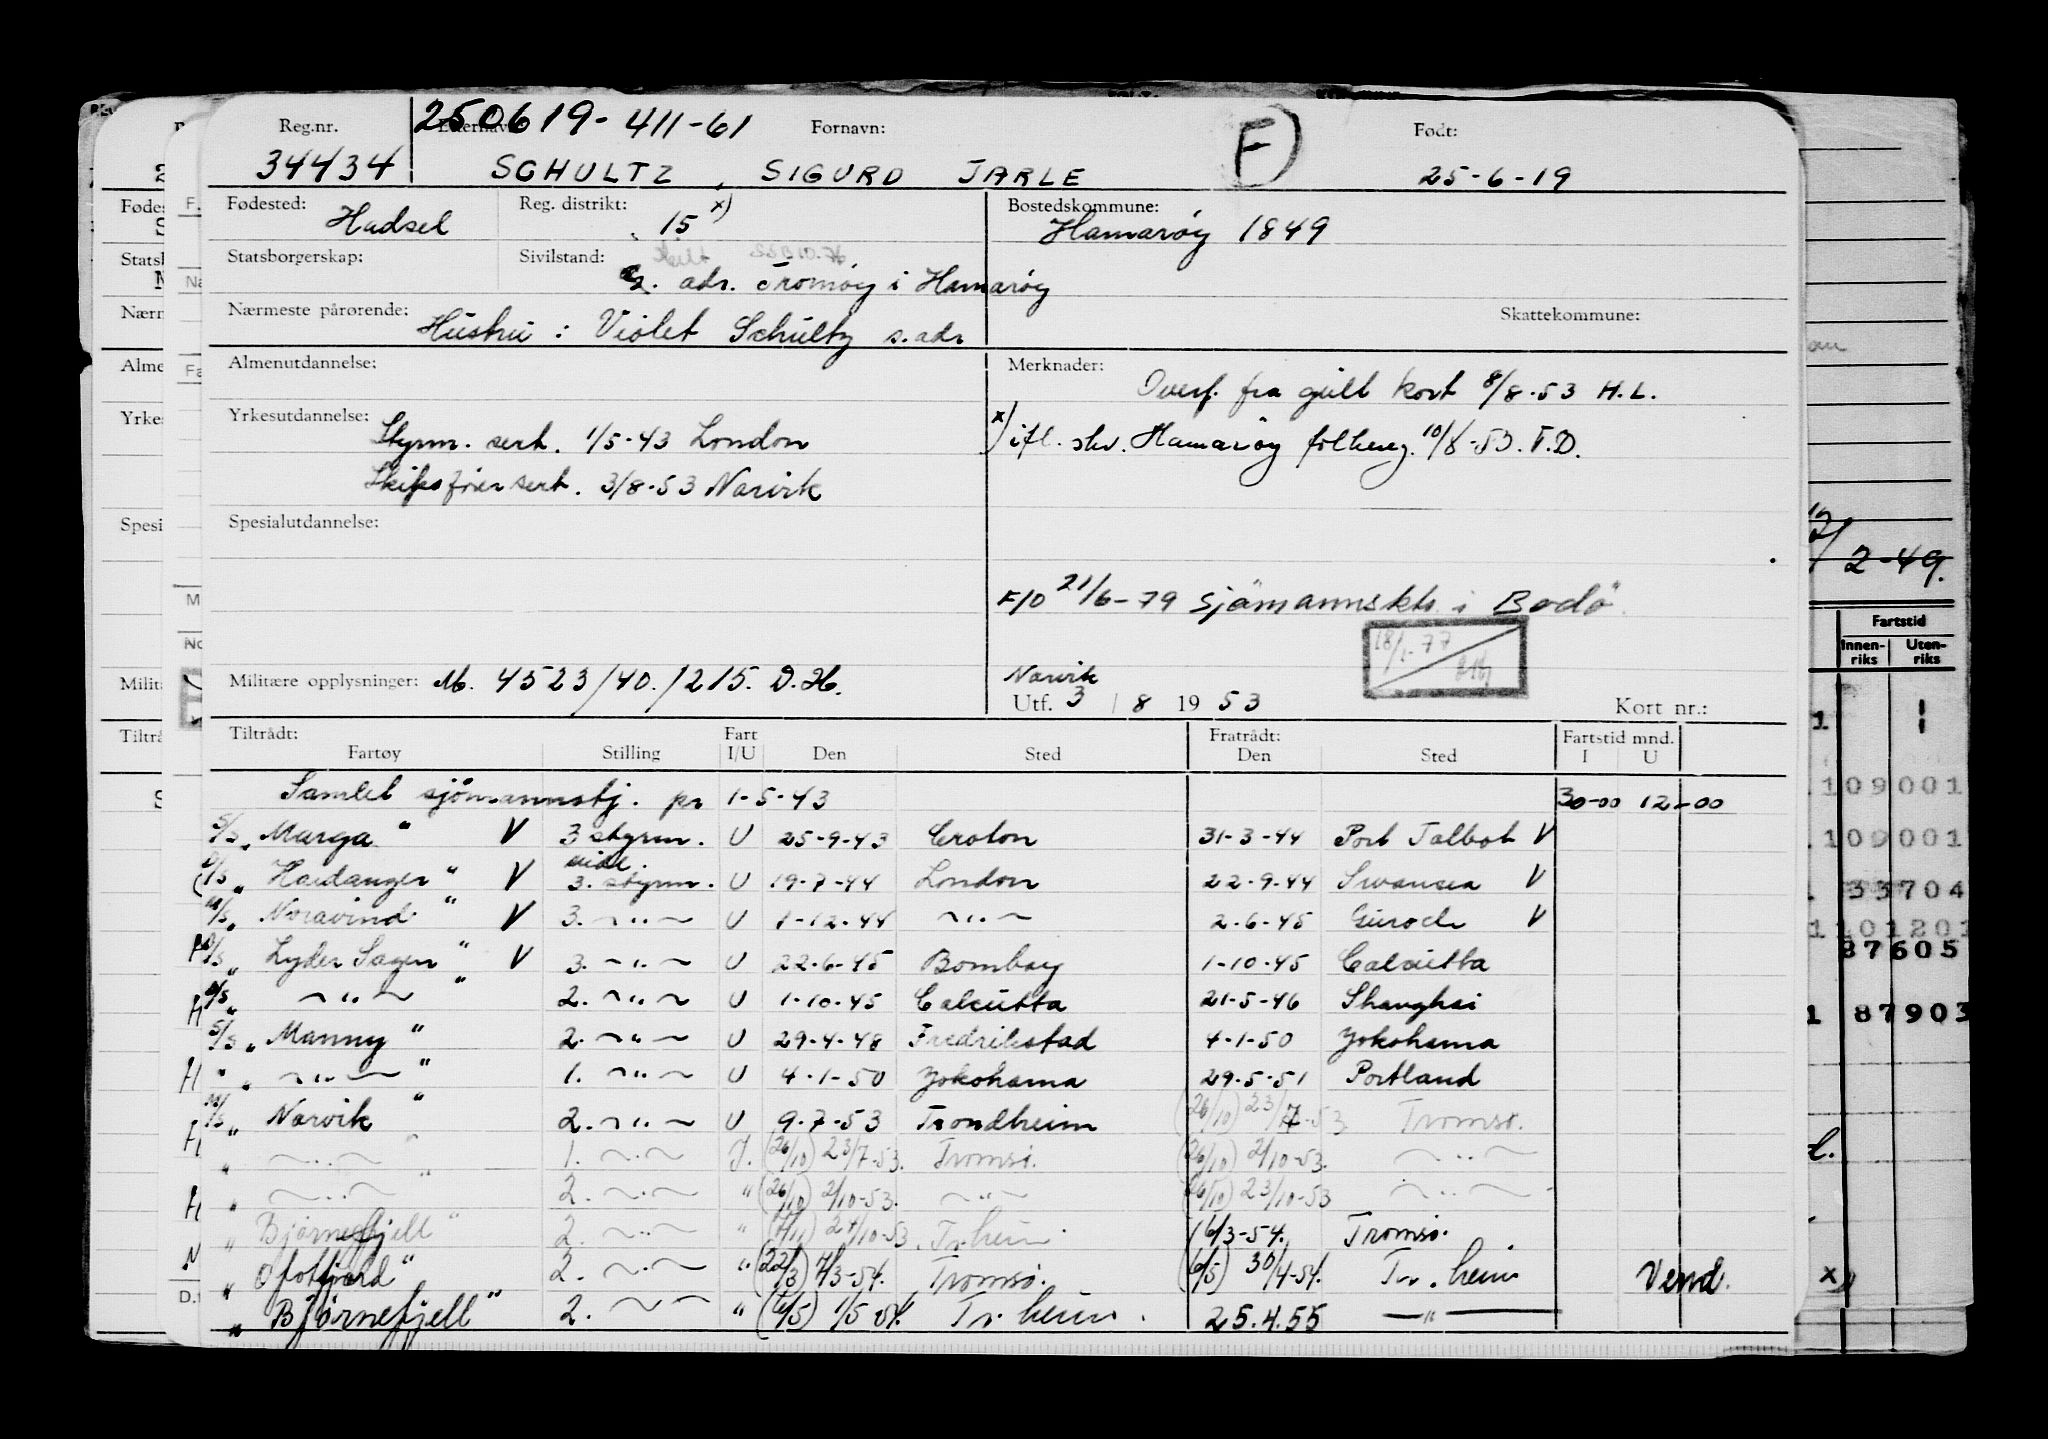 250619-411-61
Reg.nr. Etternavn: Fornavn: F) Født:
34434 SCHULTZ, SIGURD JARLE 25-6-19
Fødested: Hadsel Reg. distrikt: 15 x) Bostedskommune:
Hamarøy 1849
Statsborgerskap: Sivilstand:
adr. Tromøy i Hamarøy
Nærmeste pårørende: Hustru: Violet Schultz s.adr Skattekommune:
Almenutdannelse: Merknader:
Overf. fra gult kort 8/8-53 H.L.
Yrkesutdannelse:
Styrm. sert. 1/5-43 London
x) ifl. skr. Hamarøy folkereg. 10/8-53. T.D.
Skipsfører sert. 3/8-53 Narvik
Spesialutdannelse:
F/O 21/6-79 Sjømannsktr. i Bodø.
18/1-77
Militære opplysninger: M. 4523/40./215. D.H.
Narvik
Utf. 3/8 1953 Kort nr.:
Tiltrådt: Fart Fratrådt: Fartstid mnd.
Fartøy Stilling I/U Den Sted Den Sted I U
Samlet sjømannstj. pr 1-5-43 30-00 12-00
S/S „Marga" V 3 styrm. U 25-9-43 Croton 31-3-44 Port Talbot V
„Hardanger" V 3. styrm. U 19-7-44 London 22-9-44 Swansea V
M/S „Noravind" V 3. -"- U 1-12-44 -"- 2-6-45 Gurock V
„Lyder Sagen" V 3. -"- U 22-6-45 Bombay 1-10-45 Calcutta
H „ -"- " 2. -"- U 1-10-45 Calcutta 21-5-46 Shanghai
S/S „Manny" 2. -"- U 29-4-48 Fredrikstad 4-1-50 Yokohama
H " „ -"- " 1. -"- U 4-1-50 Yokohama 29-5-51 Portland
M/S „Narvik" 2. -"- U 9-7-53 Trondheim (26/10) 23/7-53 Tromsø.
H „ -"- " 1. -"- I. (26/10) 23/7-53. Tromsø. (26/10) 2/10-53. -"-
H „ -"- " 2. -"- " (26/10) 2/10-53. -"- (26/10) 23/10-53 -"-
„Bjørnefjell" 2. -"- " 24/10-53 Tr.heim. 16/3-54. Tromsø.
„Ofotfjord" 2. -"- " (22/3) 17/3-54. Tromsø. (6/5) 30/4-54. Tr.heim Vend.
„Bjørnefjell" 2. -"- " (6/5) 1/5 54. Tr.heim. 25.4.55 -"-
2-49.
Fartstid
Innen-riks Uten-riks
109001
109001
33704
101201
87605
87903